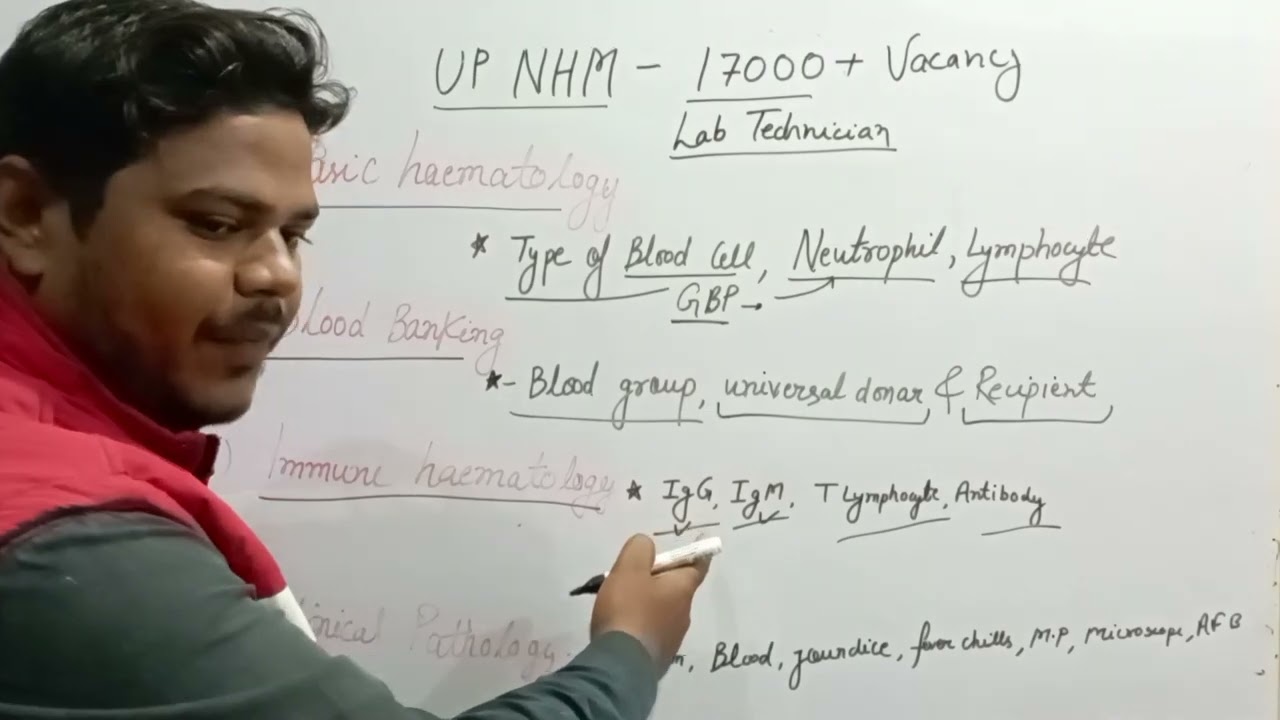 UP NHM - 17000+ Vacancy
Lab Technician
Basic haematology
* Type of Blood Cell, Neutrophil, Lymphocyte
GBP →
Blood Banking
* - Blood group, universal donar & Recipient
) Immune haematology * IgG, IgM, T Lymphocyte, Antibody
nical Pathology.
, Blood, jaundice, fever chills, M.P, microscope, AFB